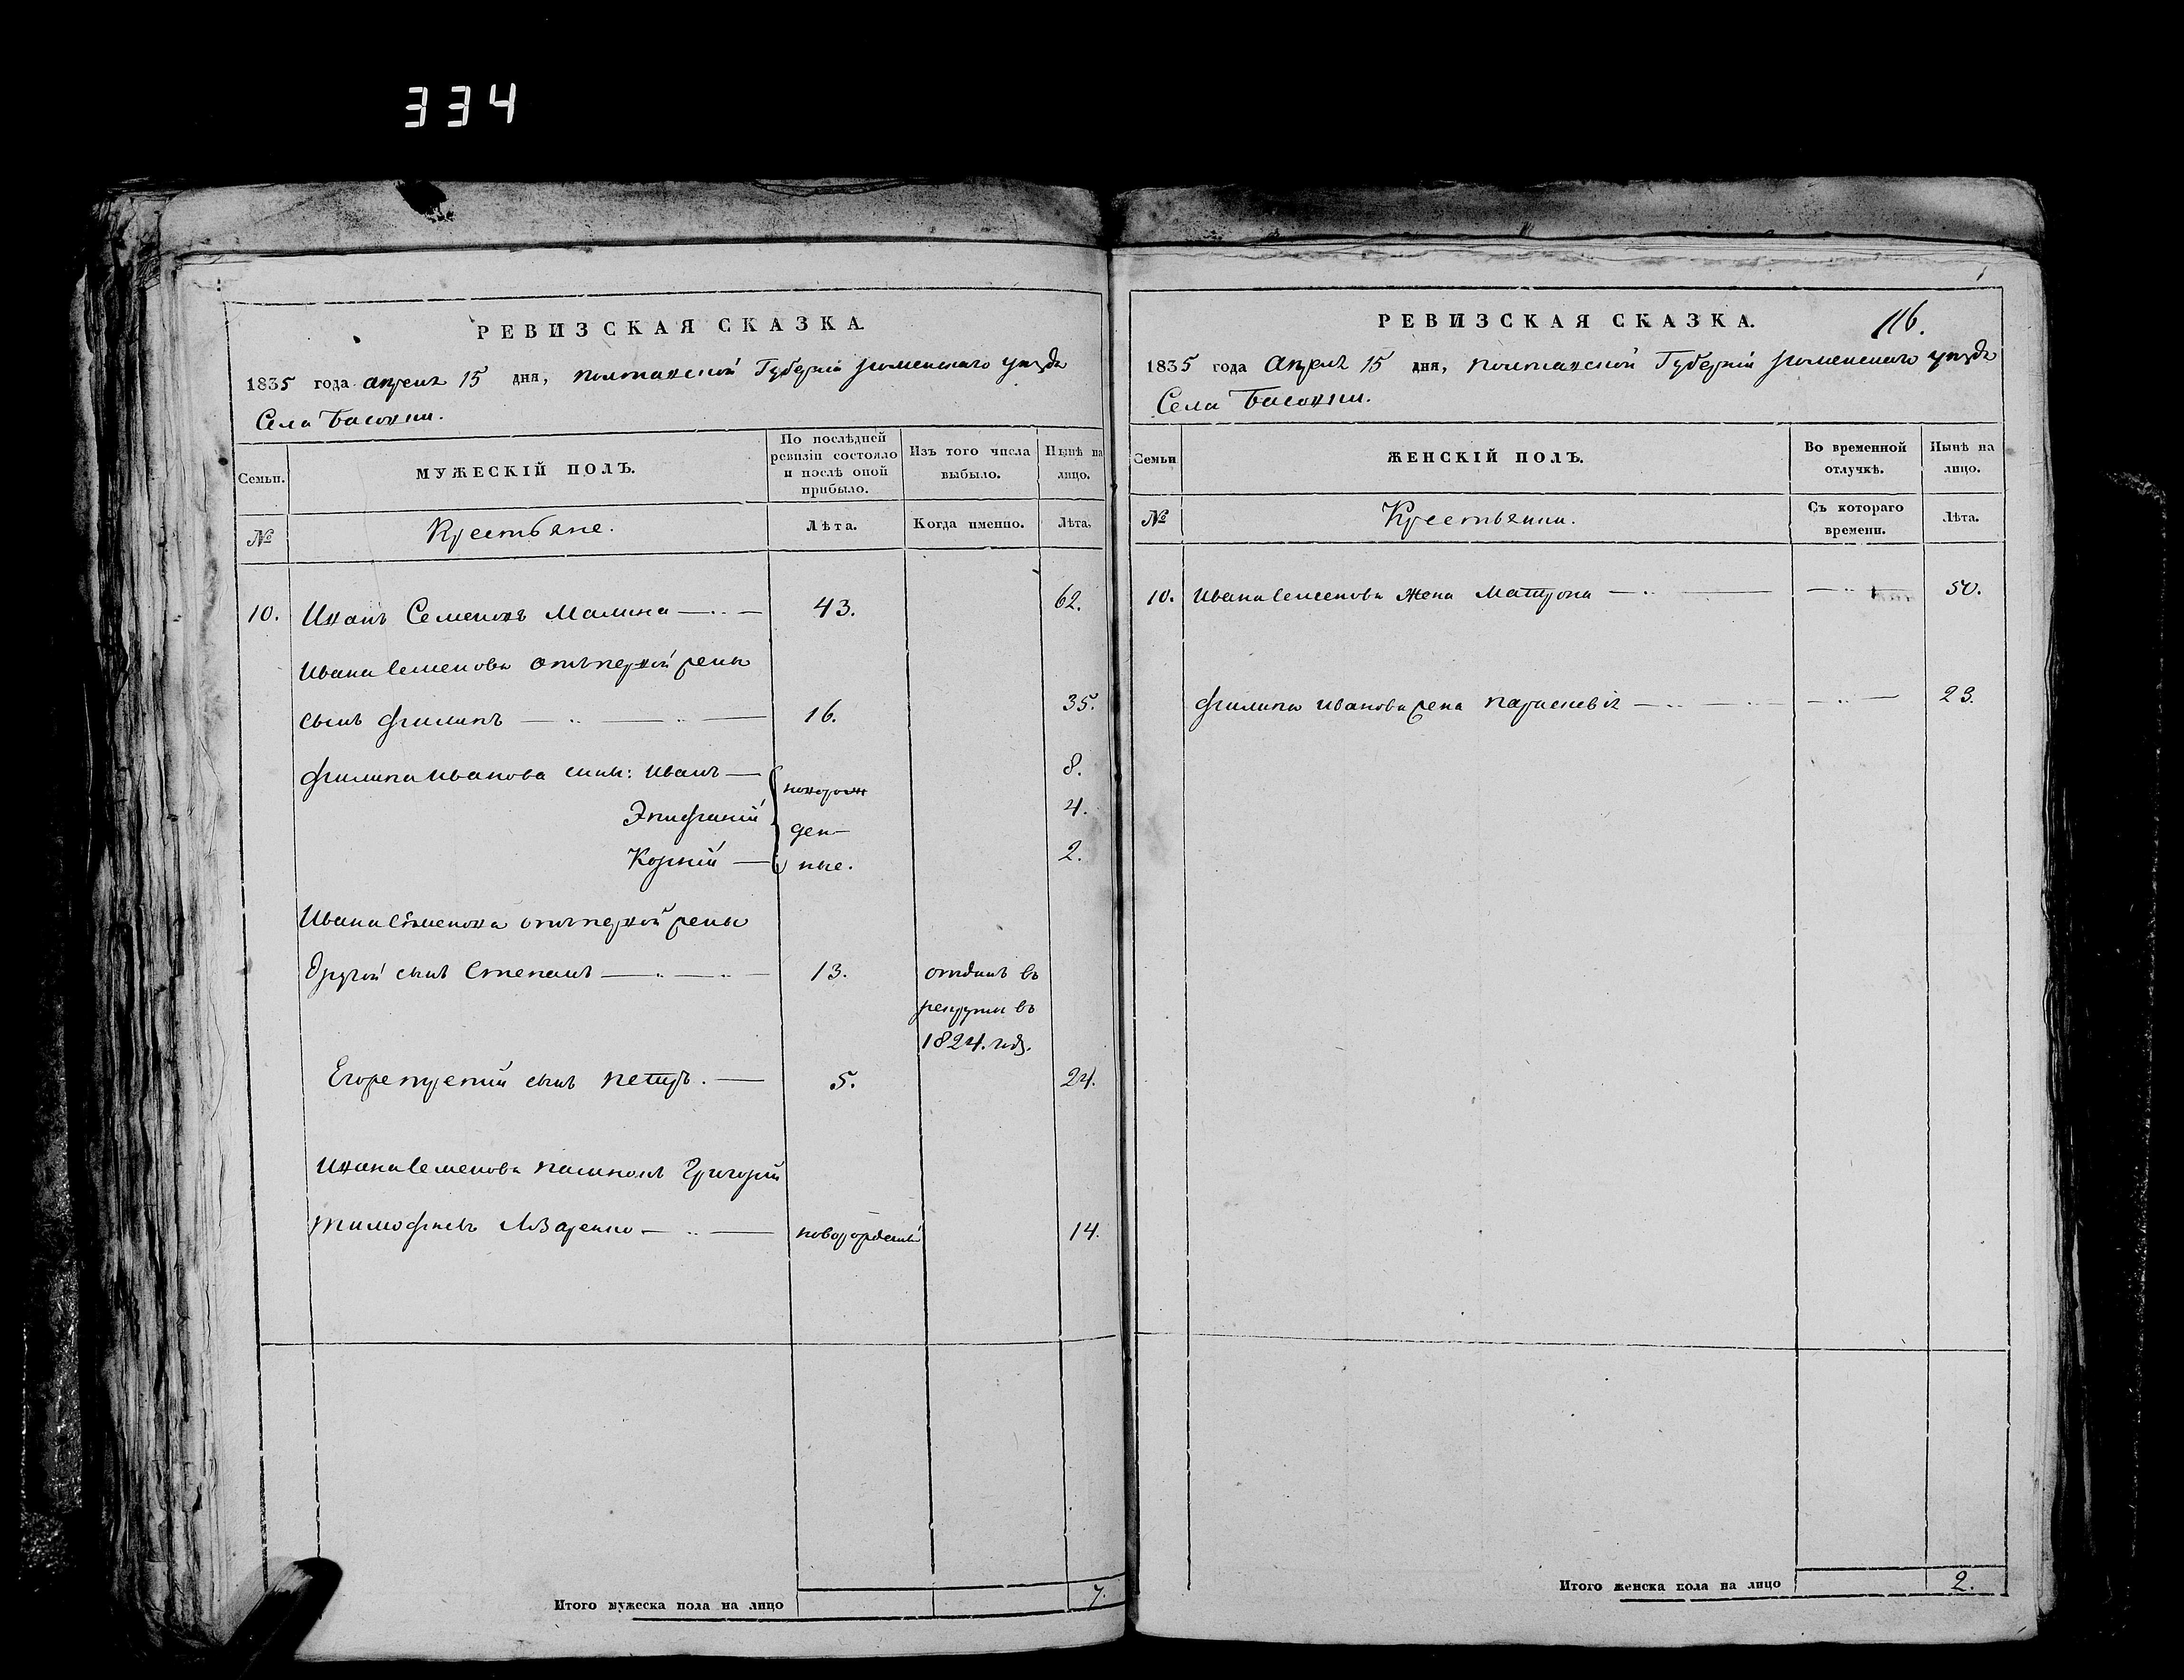 334
РЕВИЗСКАЯ СКАЗКА.
1835 года апреля 15 дня, Полтавской Губерніи Роменского уезда
Села Басовки.
Семьи.
МУЖЕСКІЙ ПОЛЪ.
По послѣдней ревизіи состояло и послѣ оной прибыло.
Изъ того числа выбыло.
Нынѣ на лицо.
№
Крестьяне.
Лѣта.
Когда именно.
Лѣта.
10. Иванъ Семеновъ Малина 43. 62.
Ивана Семенова отъ первой жены
сынъ Филипъ 16. 35.
Филипа Иванова сыны: Иванъ новорож 8.
Эпифаній ден- 4.
Корній ные. 2.
Ивана Семенова отъ первой жены
другой сынъ Степанъ 13. отданъ въ
рекруты въ
1824. годѣ.
Его третій сынъ Петръ. 5. 24.
Ивана Семенова Григорій
Тимофеевъ новорожденный 14.
Итого мужеска пола на лицо 7.
РЕВИЗСКАЯ СКАЗКА.
116.
1835 года Апреля 15 дня, Полтавской Губерніи Роменского уезда
Села Басовки.
Семьи
ЖЕНСКІЙ ПОЛЪ.
Во временной отлучкѣ.
Нынѣ на лицо.
№
Крестьянки.
Съ котораго времени.
Лѣта.
10. Ивана Семенова жена Матрона 50.
Филипа Иванова жена Параскевія 23.
Итого женска пола на лицо 2.